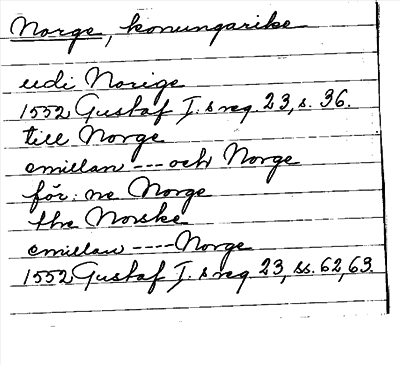 Norge, konungarike
udi Norige
1552 Gustaf I:s reg. 23, s. 36.
till Norge
emillan --- och Norge
för:ne Norge
the Norske
emillan ---- Norge
1552 Gustaf I:s reg. 23, ss. 62, 63.